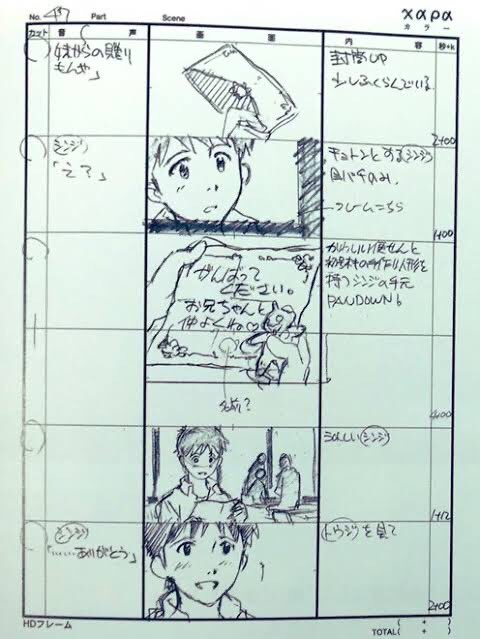 No. 457 Part Scene
xapa
カラー
カット 音 声 画 面 内 容 秒+k
妹からの贈り
もんや」
封筒UP
少しふくらんでいる
2+00
シンジ
「えっ」
キョトンとするシンジ
目パチのみ、
1+00
がんばって
ください。
お兄ちゃんと
仲よくね。
かわいい便せんと
持つシンジの手元
PAN DOWN
名前?
4+00
うれしいシンジ
1+12
シンジ
「……ありがとう」
トウジを見て
2+00
HDフレーム
TOTAL( + )